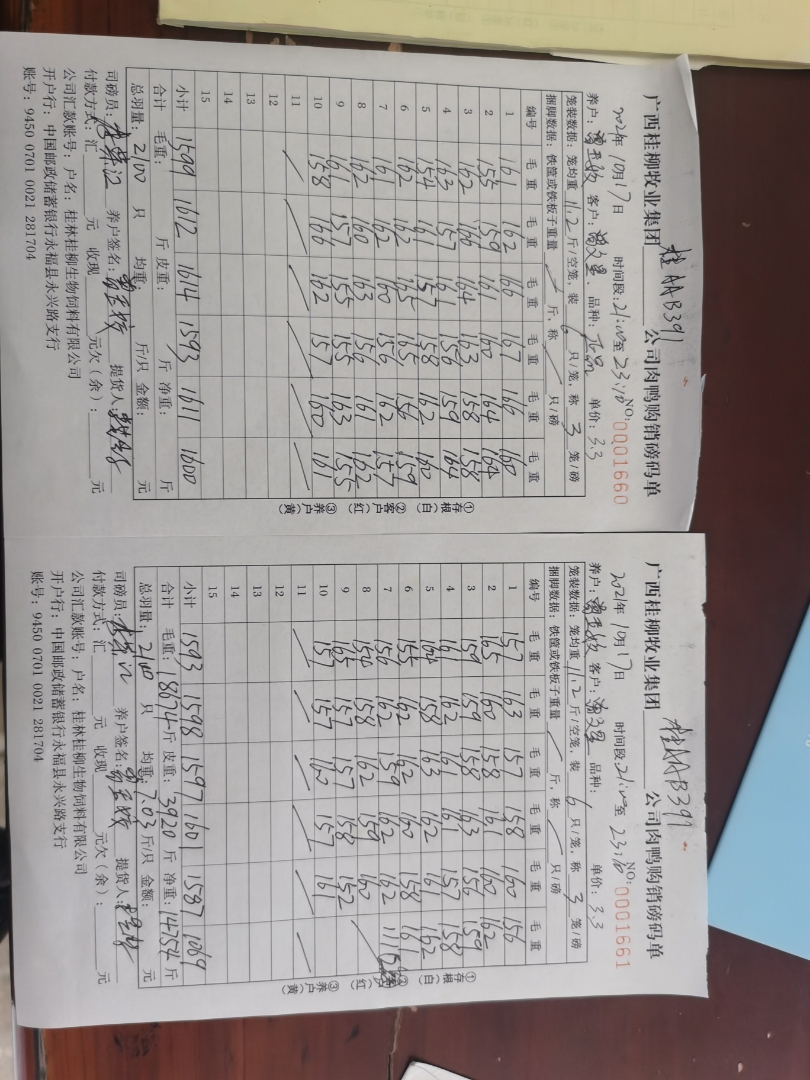 桂AAB391
广西桂柳牧业集团 公司肉鸭购销磅码单
2021年10月17日 时间段:21:00至23:10 NO:0001660
养户: 客户: 品种: 单价:3.3
笼装数据:笼均重11.2斤/空笼,装6只/笼,称3笼/磅
捆脚数据:铁筐或铁板子重量 斤,称 只/磅
编号 毛重 毛重 毛重 毛重 毛重 毛重
1 161 162 166 167 166 160
2 155 159 161 160 164 164
3 162 166 164 163 158 158
4 163 157 161 156 159 164
5 154 161 157 158 162 160
6 162 162 165 165 156 159
7 161 162 160 156 162 157
8 162 160 163 156 161 162
9 161 157 155 155 163 155
10 158 166 162 157 160 161
11
12
13
14
15
小计 1599 1612 1614 1593 1611 1600
合计 毛重: 斤 皮重: 斤 净重: 斤
总羽量:2100 只 均重: 斤/只 金额: 元
司磅员: 养户签名: 提货人:
付款方式:汇 元 收现 元欠(余): 元
公司汇款账号:户名:桂林桂柳生物饲料有限公司
开户行:中国邮政储蓄银行永福县永兴路支行
账号:9450 0701 0021 281704
①存根(白) ②客户(红) ③养户(黄)
桂AAB391
广西桂柳牧业集团 公司肉鸭购销磅码单
2021年10月17日 时间段:21:00至23:10 NO:0001661
养户: 客户: 品种: 单价:3.3
笼装数据:笼均重11.2斤/空笼,装6只/笼,称3笼/磅
捆脚数据:铁筐或铁板子重量 斤,称 只/磅
编号 毛重 毛重 毛重 毛重 毛重 毛重
1 157 163 157 158 160 156
2 165 160 158 161 160 162
3 159 159 158 163 156 159
4 161 162 161 161 157 158
5 164 158 163 162 161 162
6 155 162 162 160 158 161
7 156 162 159 162 162 111
8 154 158 162 159 160
9 165 157 157 158 152
10 157 157 160 157 161
11
12
13
14
15
小计 1593 1598 1597 1601 1587 1069
合计 毛重:18674斤 皮重:3920斤 净重:14754斤
总羽量:2100 只 均重:7.03斤/只 金额: 元
司磅员: 养户签名: 提货人:
付款方式:汇 元 收现 元欠(余): 元
公司汇款账号:户名:桂林桂柳生物饲料有限公司
开户行:中国邮政储蓄银行永福县永兴路支行
账号:9450 0701 0021 281704
①存根(白) ②客户(红) ③养户(黄)